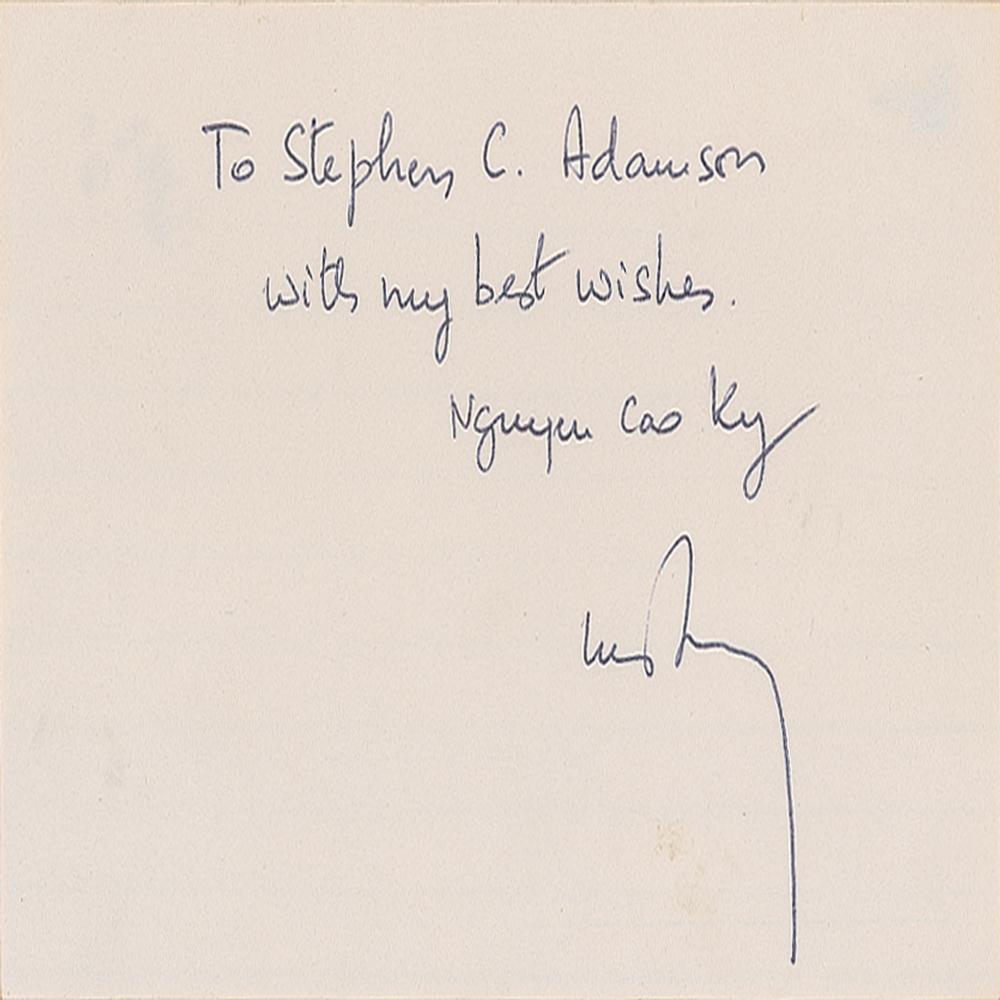 To Stephen C. Adamson
with my best wishes.
Nguyen Cao Ky